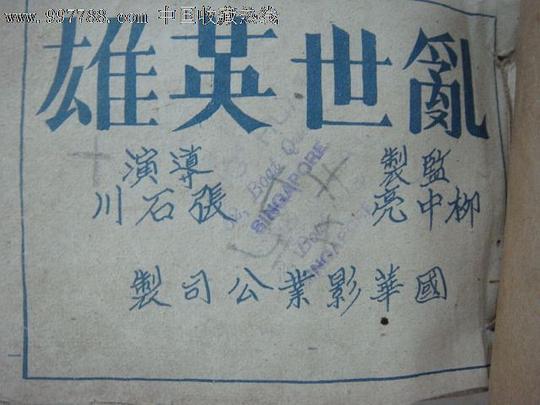 www.997788.com 中国收藏热线
亂世英雄
監製
導演
柳中亮
張石川
國華影業公司製
SINGAPORE